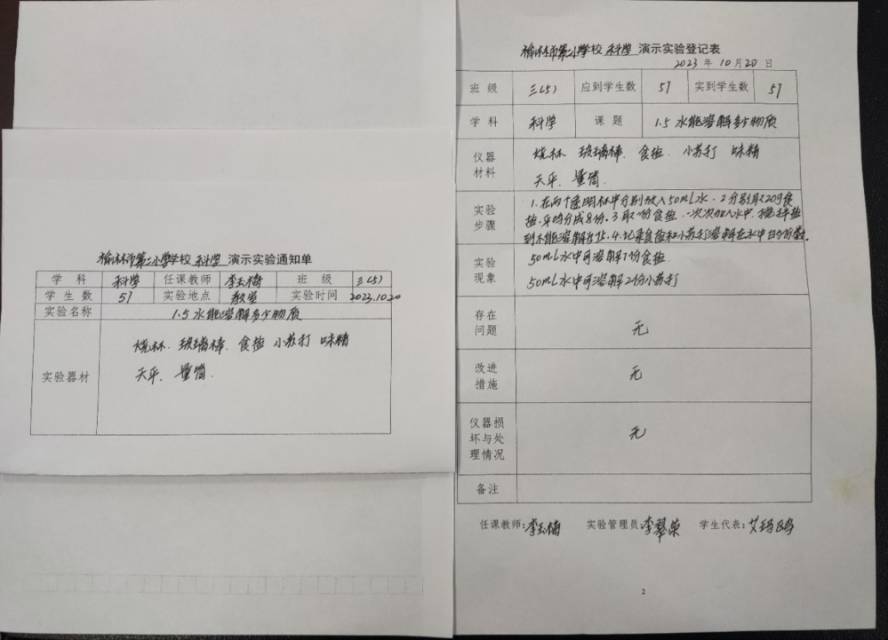 榆林市第二小学校 科学 演示实验通知单
学 科 科学 任课教师 李玉梅 班 级 三(5)
学 生 数 51 实验地点 教室 实验时间 2023.10.20
实验名称 1.5 水能溶解多少物质
实验器材 烧杯、玻璃棒、食盐 小苏打 味精
天平、量筒.
科学 演示实验登记表
2023 年 10 月 20 日
班 级 三(5) 应到学生数 51 实到学生数 51
学 科 科学 课 题 1.5 水能溶解多少物质
仪器
材料
烧杯 玻璃棒、食盐、小苏打 味精
天平、量筒.
实验
步骤
1.在两个透明杯中分别放入50mL水.2分别取20g食
盐.平均分成8份.3取1份食盐.一次次加入水中.搅拌直
到不能溶解为止.4.比较食盐和小苏打溶解在水中的份数.
实验
现象
50mL水中可溶解7份食盐.
50mL水中可溶解2份小苏打
存在
问题
无
改进
措施
无
仪器损
坏与处
理情况
无
备注
任课教师:李玉梅 实验管理员: 学生代表:
2